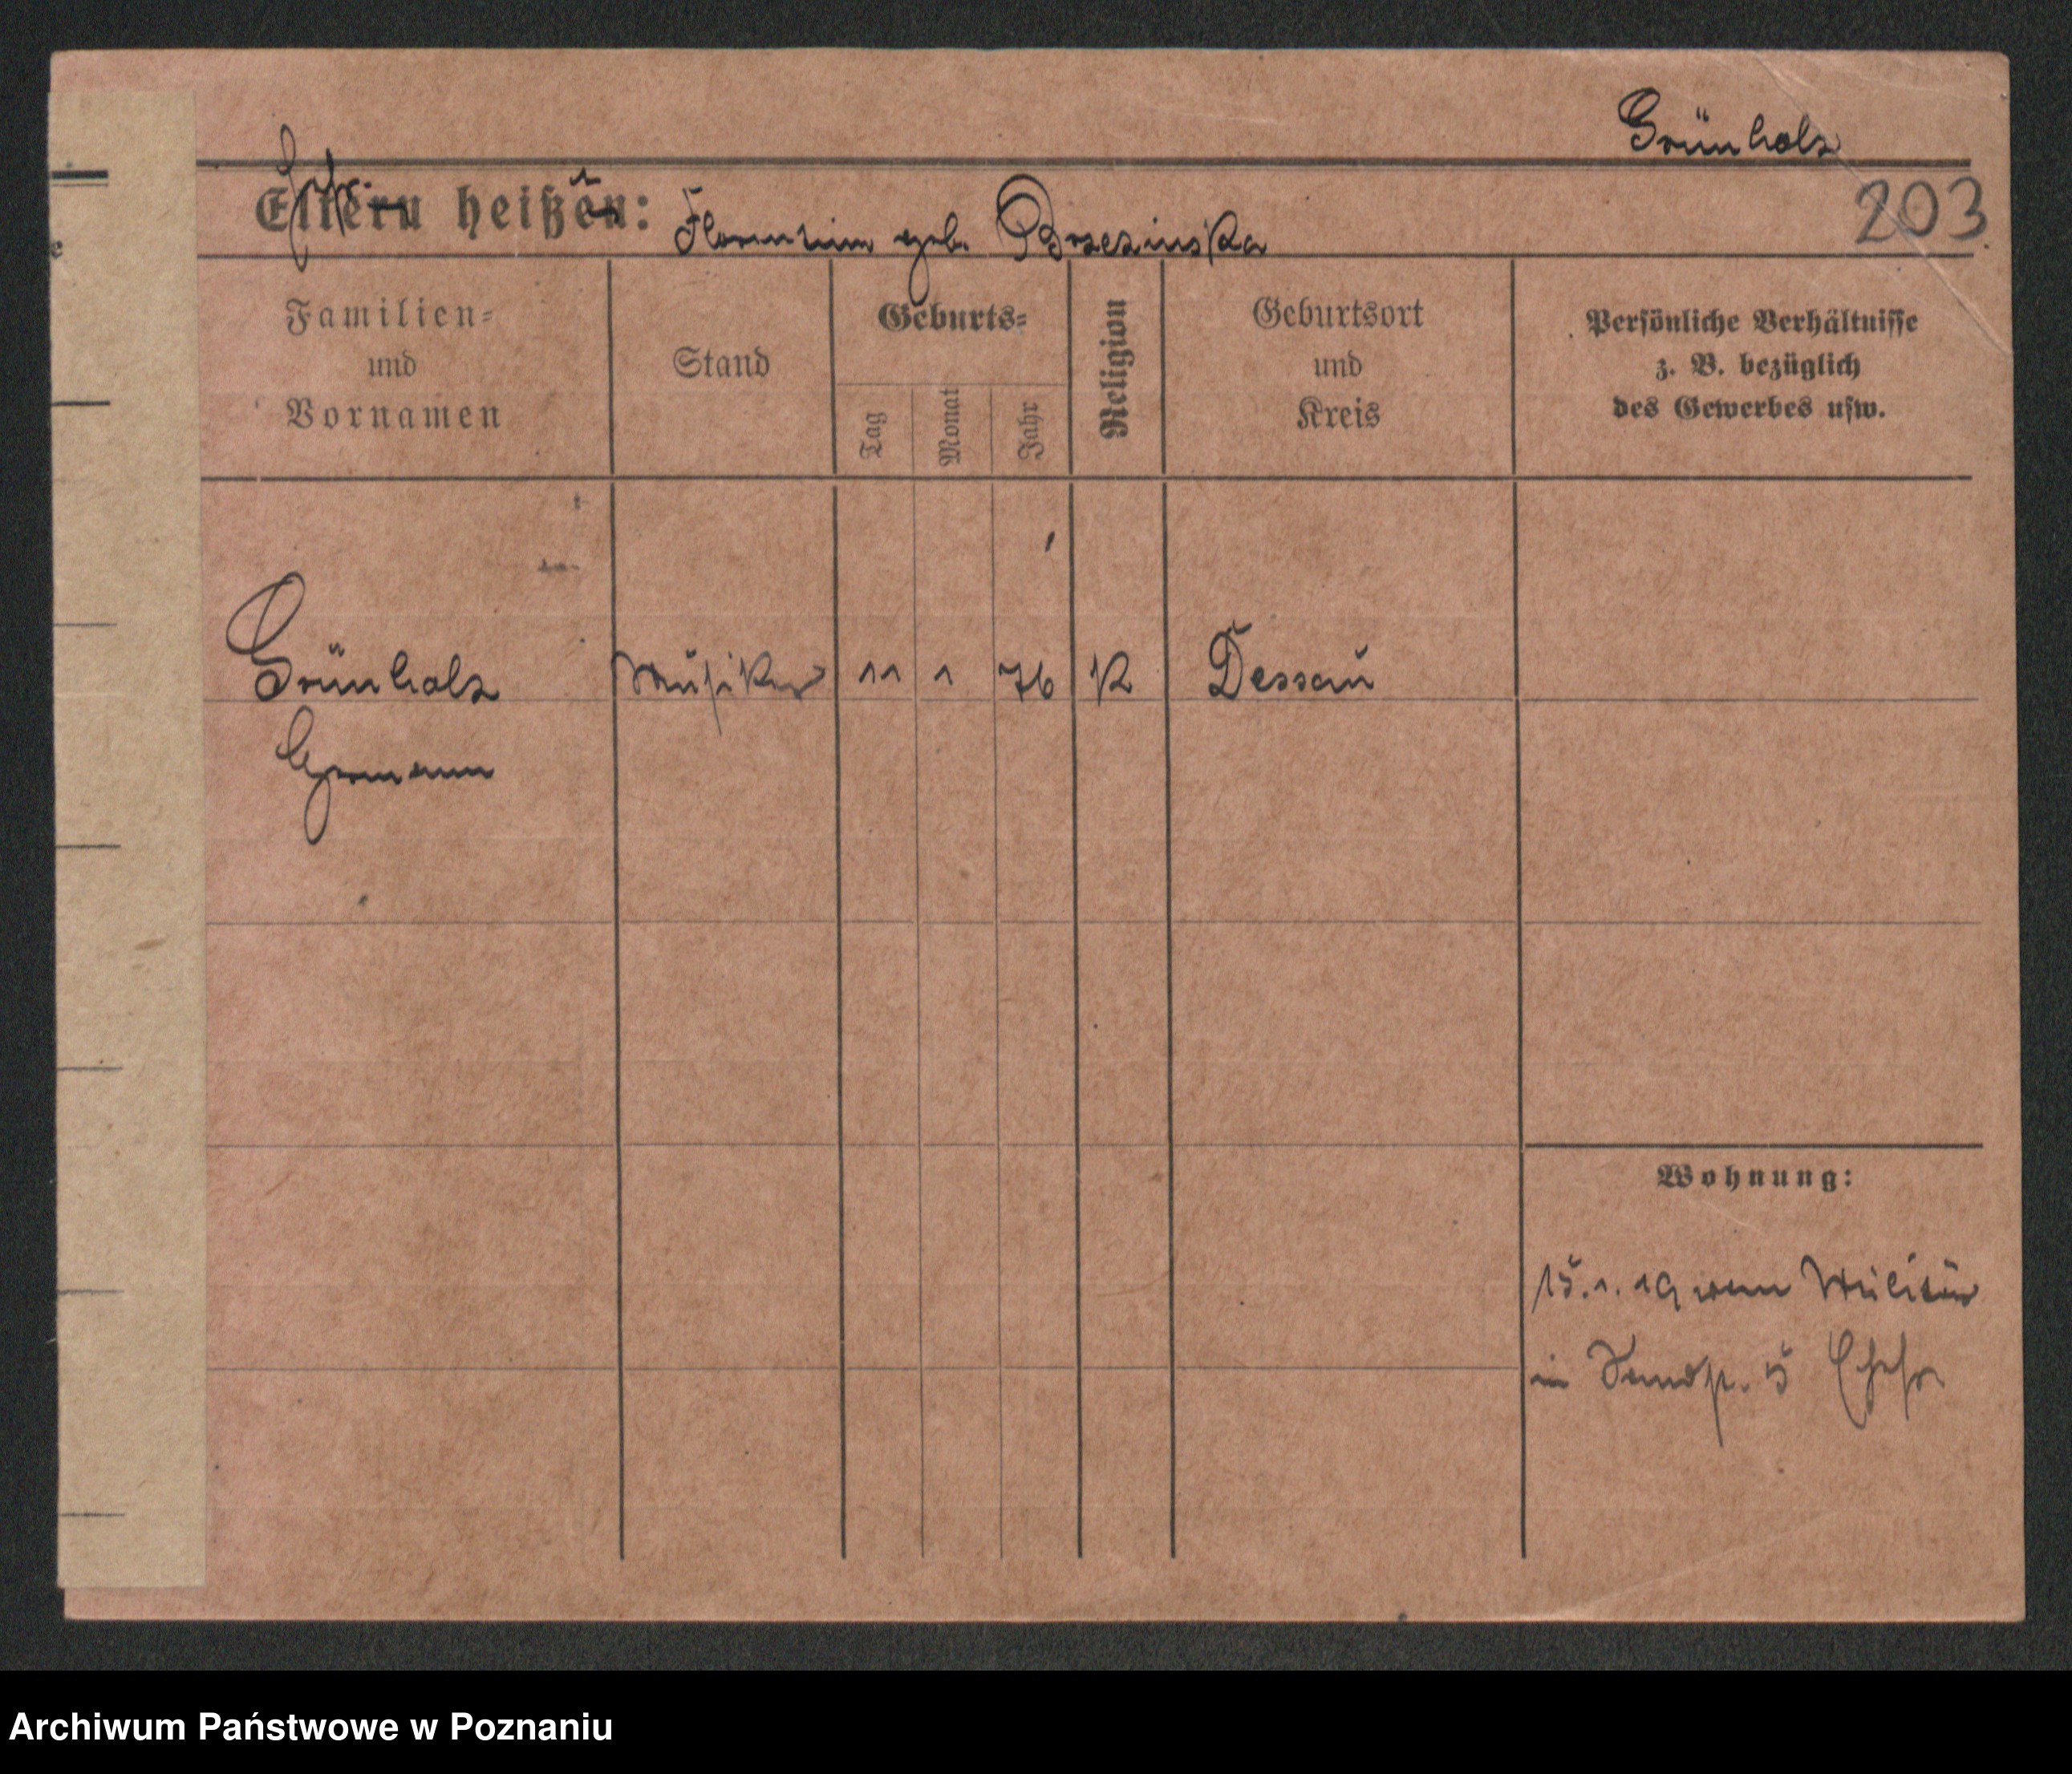 Grünholz
203
Ehefr. heißt: Florentine geb. Brzezinska
Familien=
und
Vornamen
Stand
Geburts=
Tag
Monat
Jahr
Religion
Geburtsort
und
Kreis
Persönliche Verhältnisse
z. B. bezüglich
des Gewerbes usw.
Grünholz Musiker 11 1 76 K Dessau
Hermann
Wohnung:
15.1.19 vom Militär
in 5 Ehefr
Archiwum Państwowe w Poznaniu